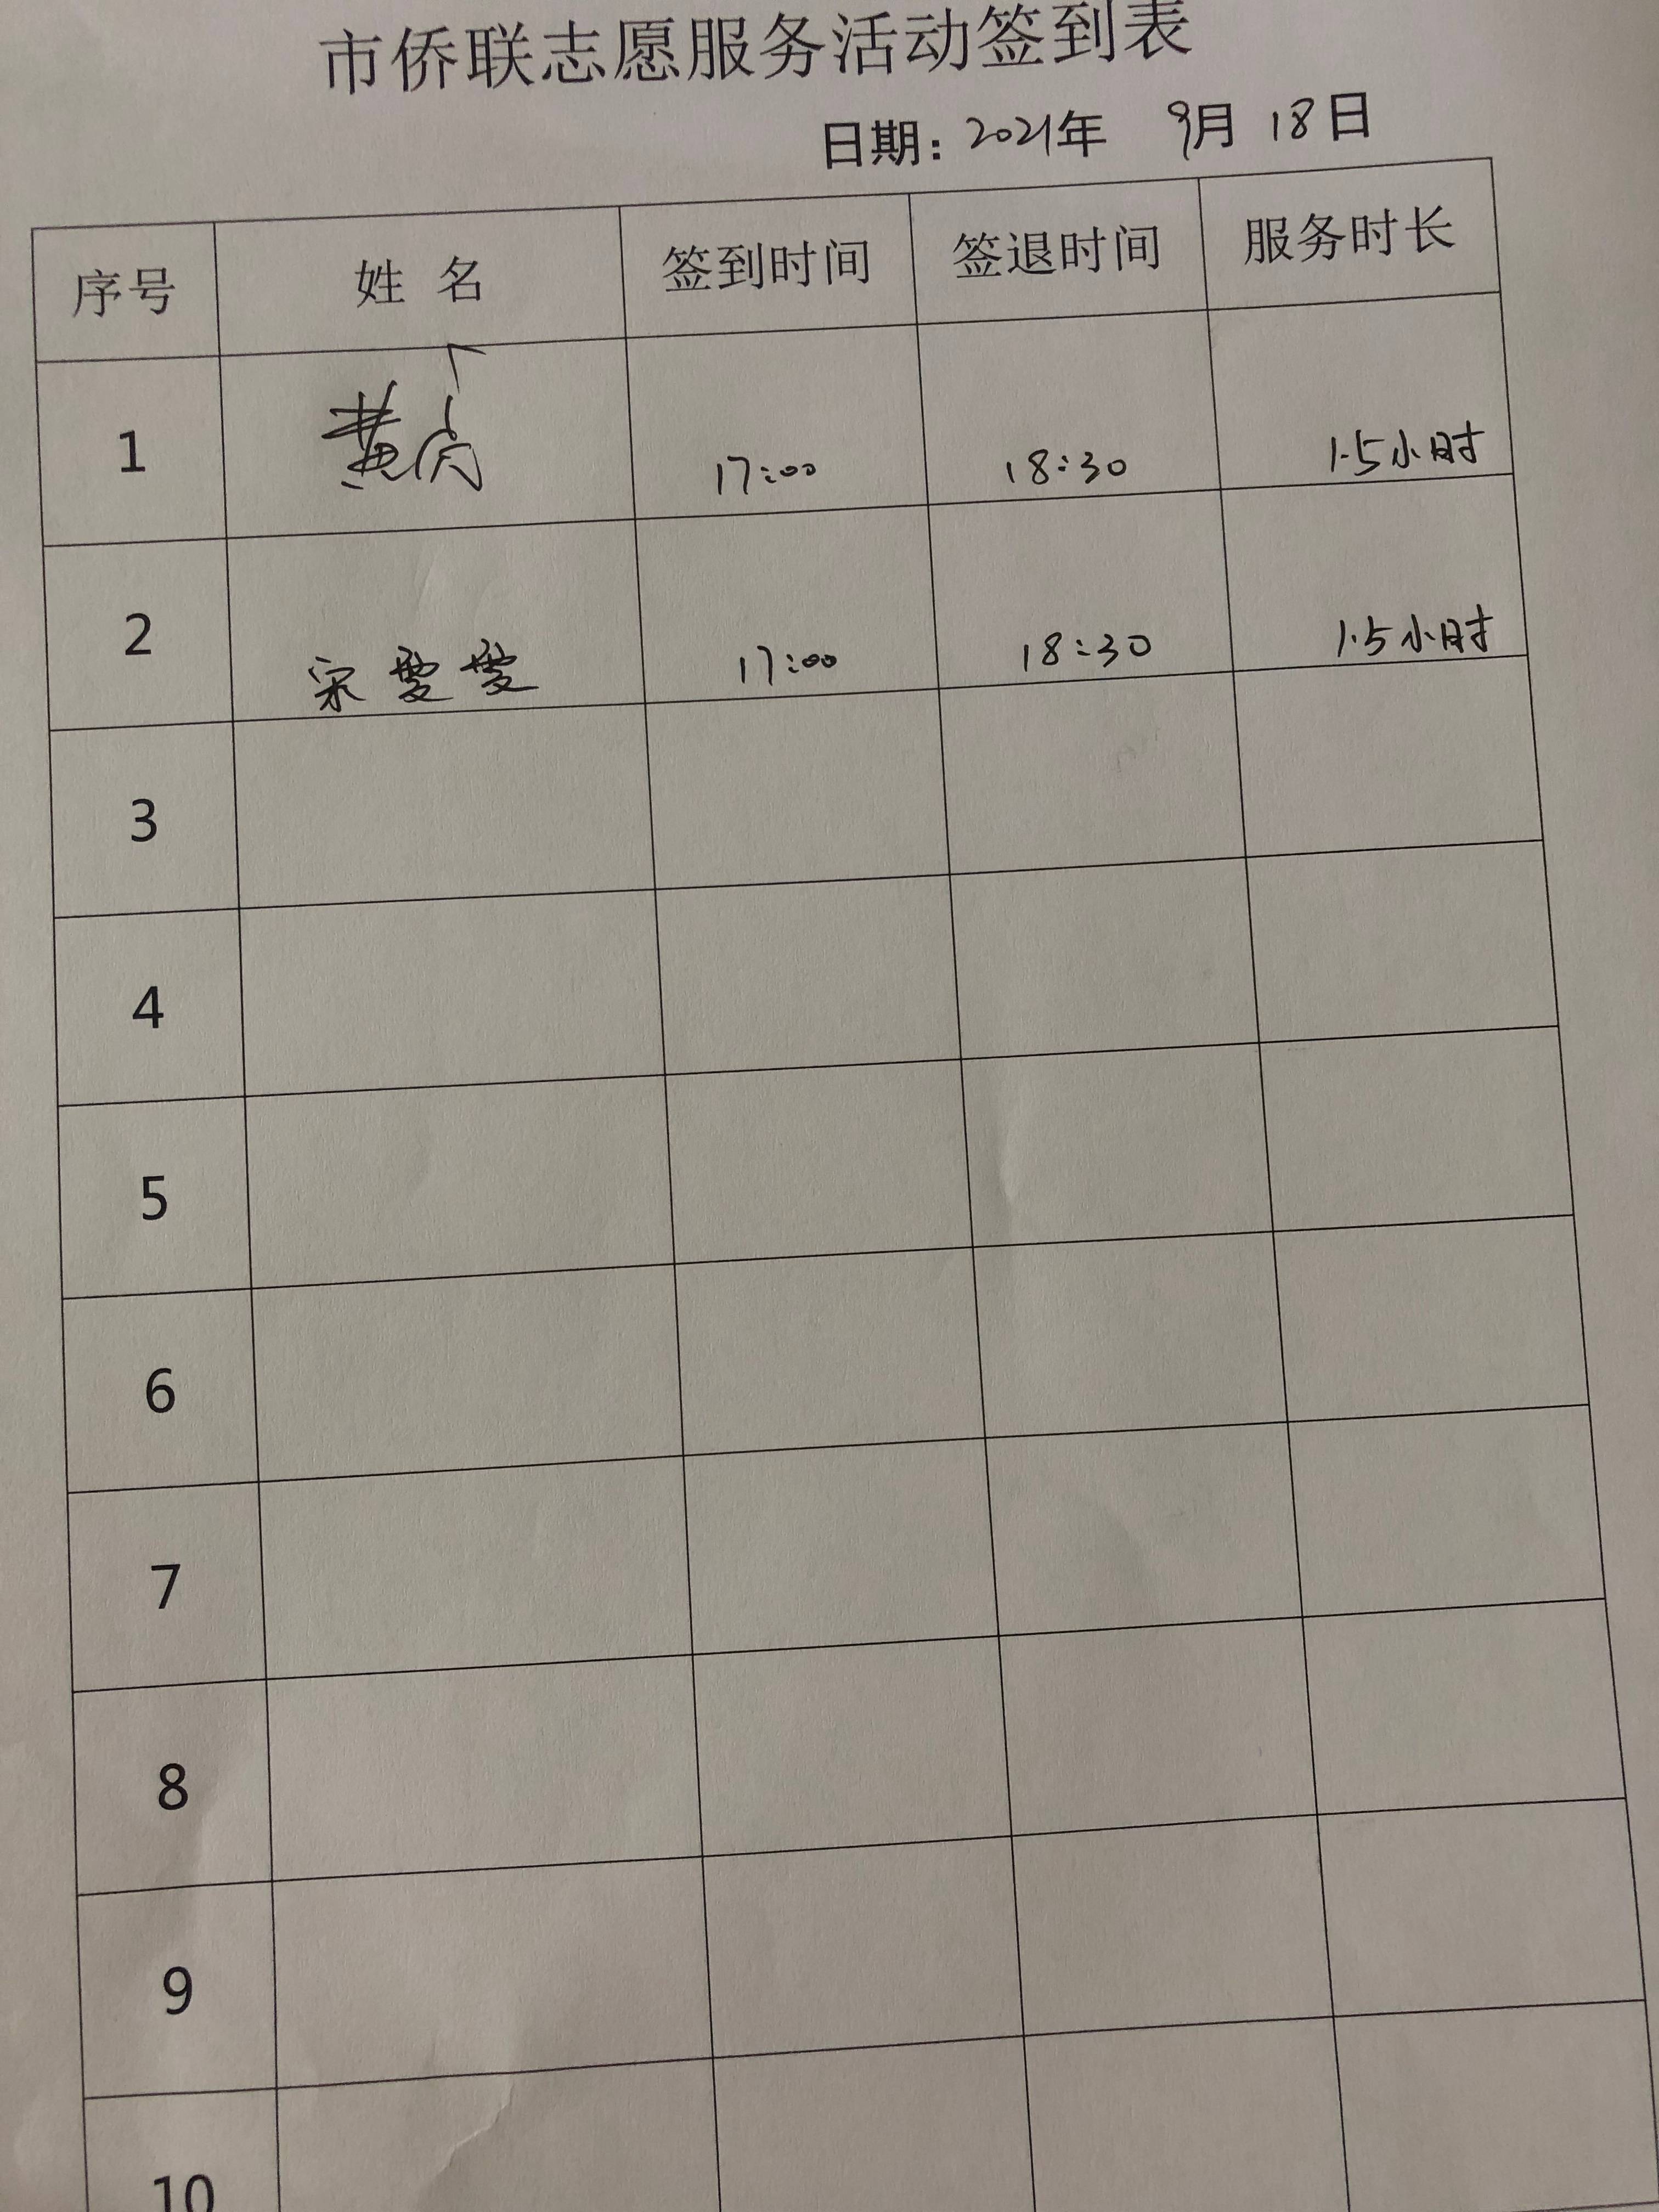 市侨联志愿服务活动签到表
日期：2021年 9月 18日
序号 姓 名 签到时间 签退时间 服务时长
1 黄 17:00 18:30 1.5小时
2 宋雯雯 17:00 18:30 1.5小时
3
4
5
6
7
8
9
10